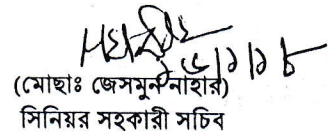 ৫/১/১৮
(মোছাঃ জেসমুন নাহার)
সিনিয়র সহকারী সচিব